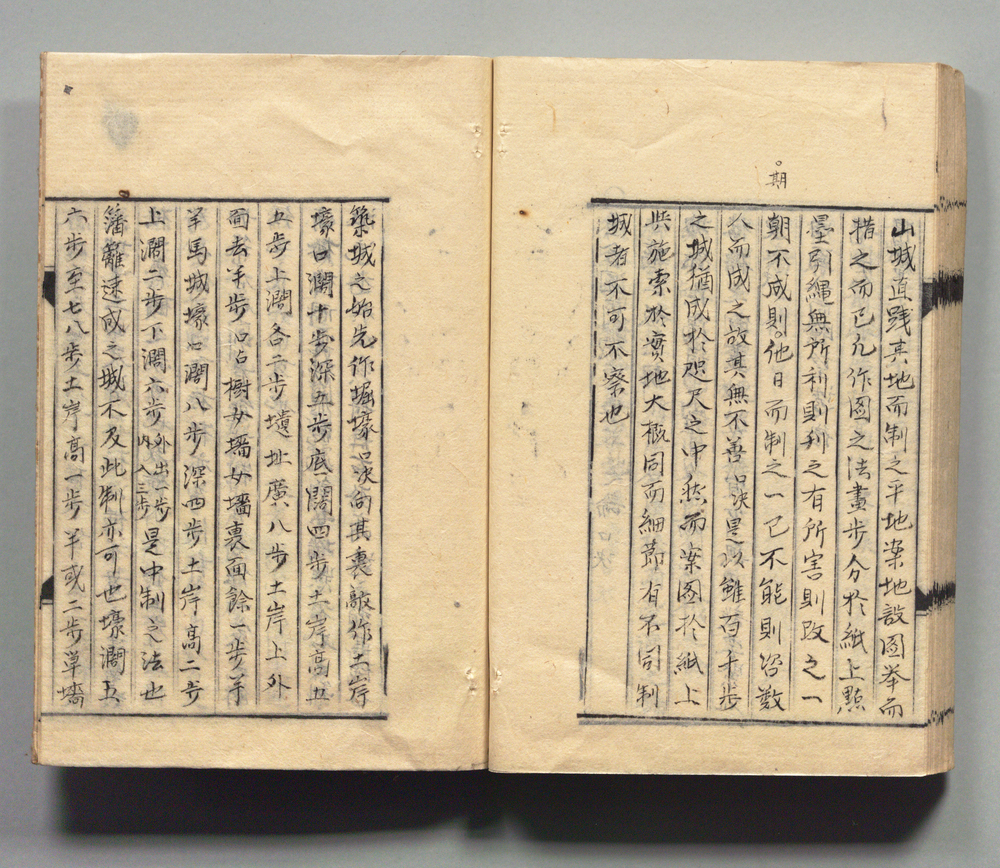 期
山城直践其地而制之平地案地設图举而
措之而已凡作图之法畫步分於紙上點
墨引繩無所利則利之有所害則改之一
朝不成則他日而制之一已不能則咨数
人而成之故其無不善口决是以雖百千步
之城猶成於咫尺之中然而案图於紙上
與施索於實地大概同而細節有不同制
城者不可不察也
築城之始先作堀壕口决向其裏敲作土岸
壕口濶十步深五步底濶四步土岸高五
五步上濶各二步墳址廣八步土岸上外
面去半步口占樹女墻女墻裏面餘一步半
羊馬城壕口濶八步深四步土岸高二步
上濶二步下濶六步外出一步内入三步是中制之法也
籓籬速成之城不及此制亦可也壕濶五
六步至七八步土岸高一步半或二步草墻